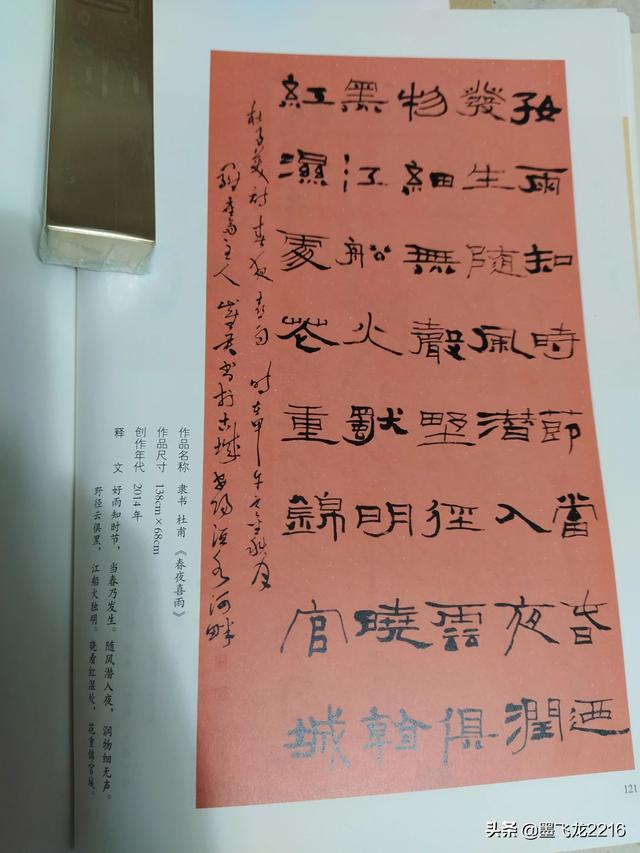 好雨知時節當春迺
發生隨風潛入夜潤
物細無聲野徑雲俱
黑江船火獨明曉看
紅濕處花重錦官城
杜子美詩春夜喜雨 時在甲午之年秋月
齋主人 書於古城安陽洹水河畔
作品名称 隶书 杜甫《春夜喜雨》
作品尺寸 138cm×68cm
创作年代 2014年
释文 好雨知时节，当春乃发生。随风潜入夜，润物细无声。
野径云俱黑，江船火独明。晓看红湿处，花重锦官城。
121
头条 @墨飞龙2216